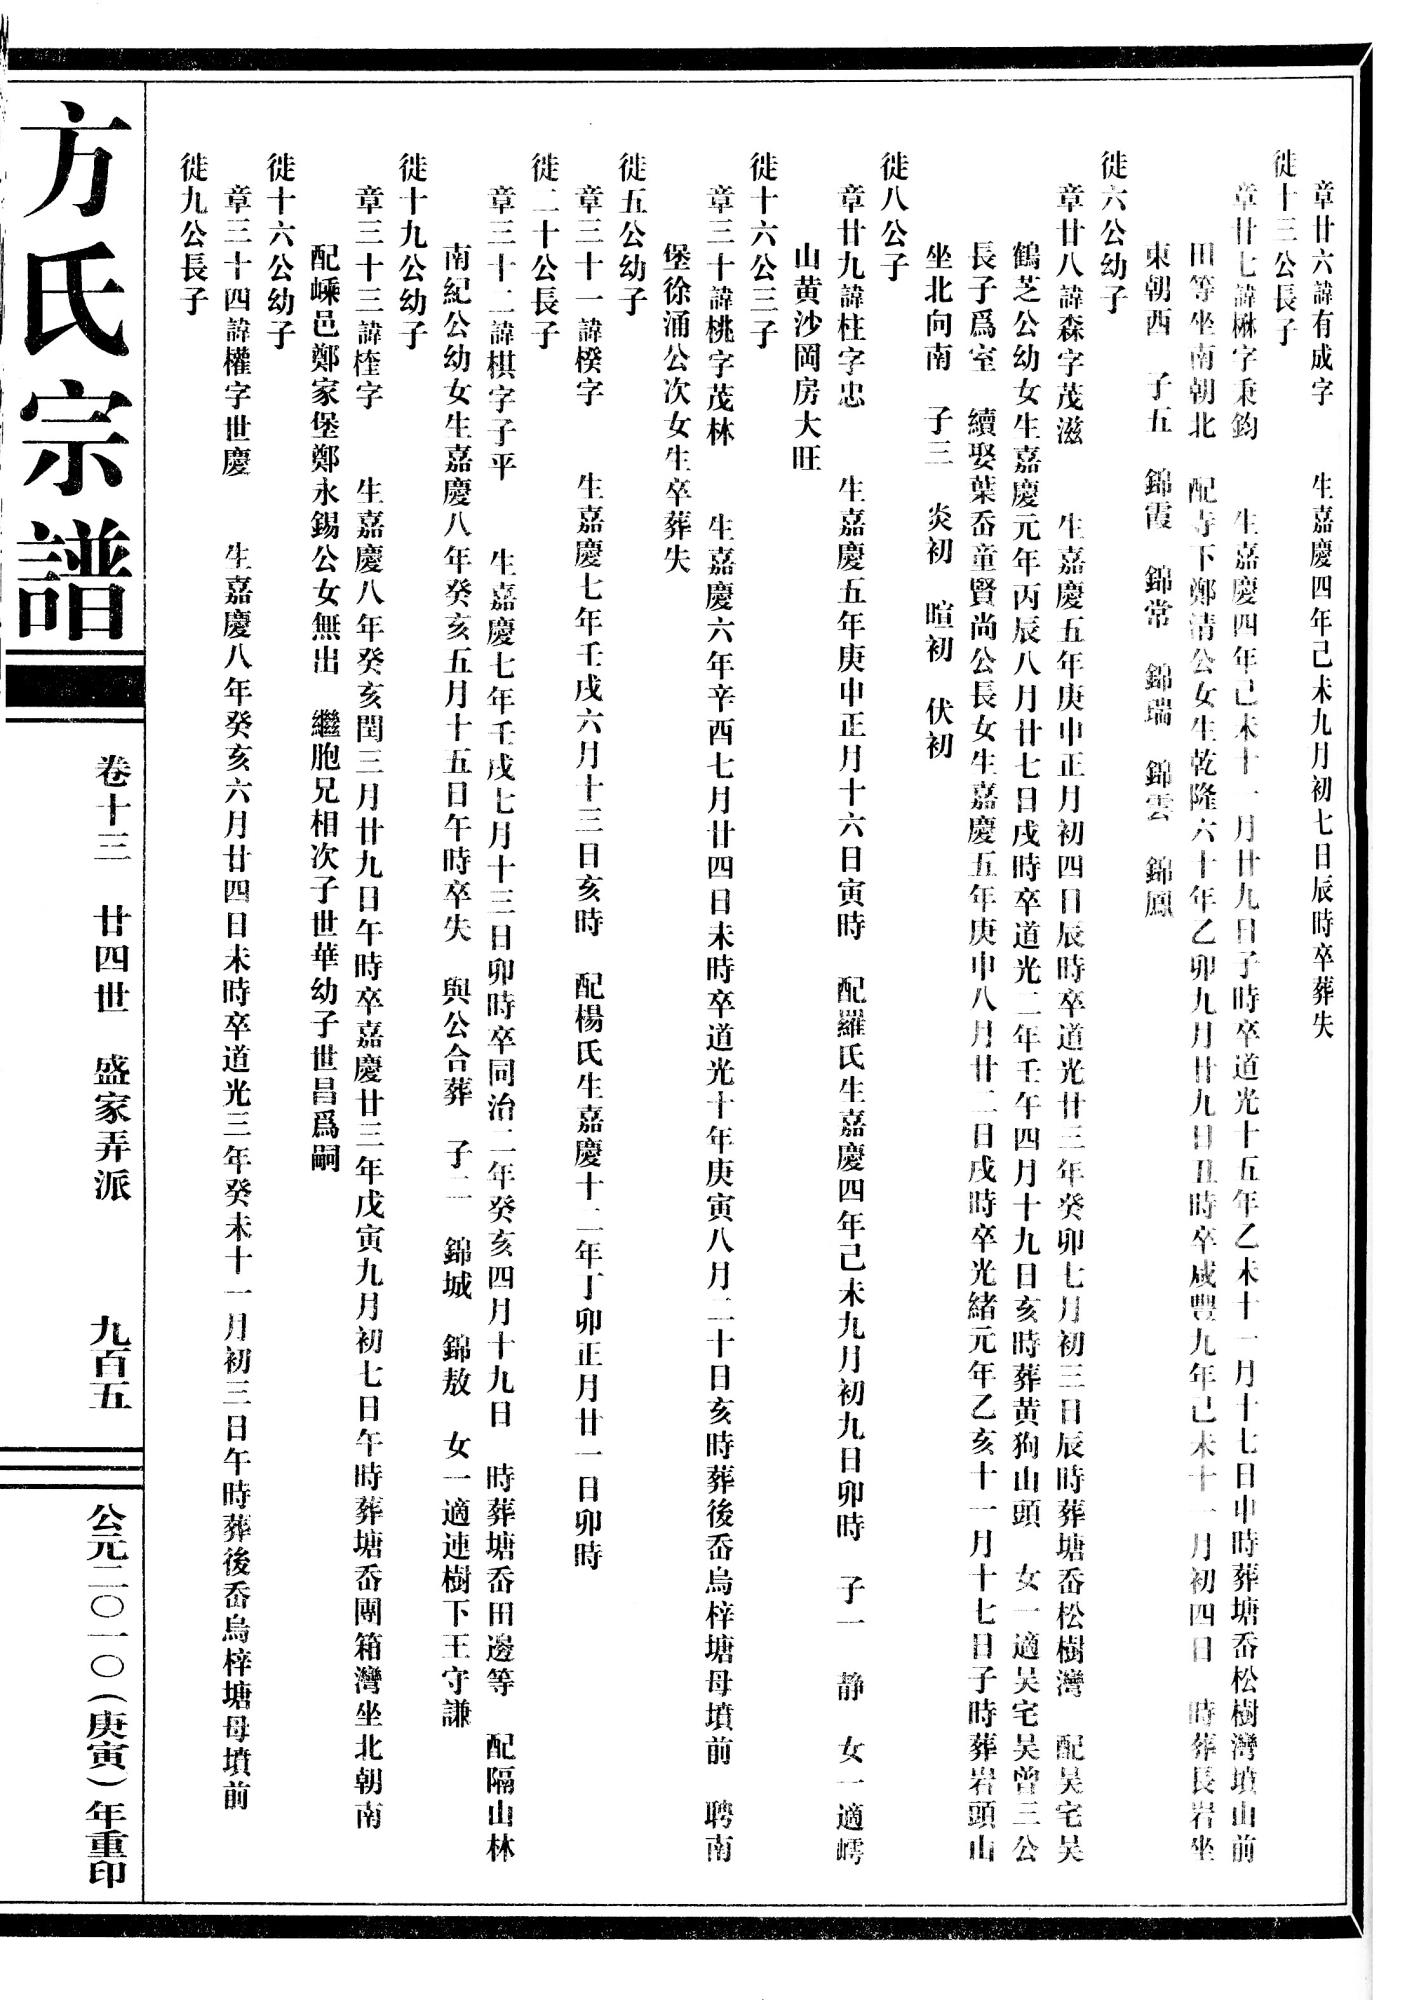 章廿六諱有成字　生嘉慶四年己未九月初七日辰時卒葬失
徙十三公長子
章廿七諱楙字秉鈞　生嘉慶四年己未十一月廿九日子時卒道光十五年乙未十一月十七日申時葬塘岙松樹灣墳山前
田等坐南朝北　配寺下鄭清公女生乾隆六十年乙卯九月廿九日丑時卒咸豐九年己未十一月初四日　時葬長岩坐
東朝西　子五　錦霞　錦常　錦瑞　錦雲　錦鳳
徙六公幼子
章廿八諱森字茂滋　生嘉慶五年庚申正月初四日辰時卒道光廿三年癸卯七月初三日辰時葬塘岙松樹灣　配吴宅吴
鶴芝公幼女生嘉慶元年丙辰八月廿七日戌時卒道光二年壬午四月十九日亥時葬黄狗山頭　女一適吴宅吴曾三公
長子爲室　續娶葉岙童賢尚公長女生嘉慶五年庚申八月廿二日戌時卒光緒元年乙亥十一月十七日子時葬岩頭山
坐北向南　子三　炎初　暄初　伏初
徙八公子
章廿九諱柱字忠　生嘉慶五年庚申正月十六日寅時　配羅氏生嘉慶四年己未九月初九日卯時　子一　静　女一適嶀
山黄沙岡房大旺
徙十六公三子
章三十諱桃字茂林　生嘉慶六年辛酉七月廿四日未時卒道光十年庚寅八月二十日亥時葬後岙烏梓塘母墳前　聘南
堡徐涌公次女生卒葬失
徙五公幼子
章三十一諱楑字　生嘉慶七年壬戌六月十三日亥時　配楊氏生嘉慶十二年丁卯正月廿一日卯時
徙二十公長子
章三十二諱棋字子平　生嘉慶七年壬戌七月十三日卯時卒同治二年癸亥四月十九日　時葬塘岙田邊等　配隔山林
南紀公幼女生嘉慶八年癸亥五月十五日午時卒失　與公合葬　子二　錦城　錦敖　女一適連樹下王守謙
徙十九公幼子
章三十三諱桎字　生嘉慶八年癸亥閏三月廿九日午時卒嘉慶廿三年戊寅九月初七日午時葬塘岙團箱灣坐北朝南
配嵊邑鄭家堡鄭永錫公女無出　繼胞兄相次子世華幼子世昌爲嗣
徙十六公幼子
章三十四諱權字世慶　生嘉慶八年癸亥六月廿四日未時卒道光三年癸未十一月初三日午時葬後岙烏梓塘母墳前
徙九公長子
方氏宗譜
卷十三　廿四世　盛家弄派　九百五
公元二〇一〇（庚寅）年重印